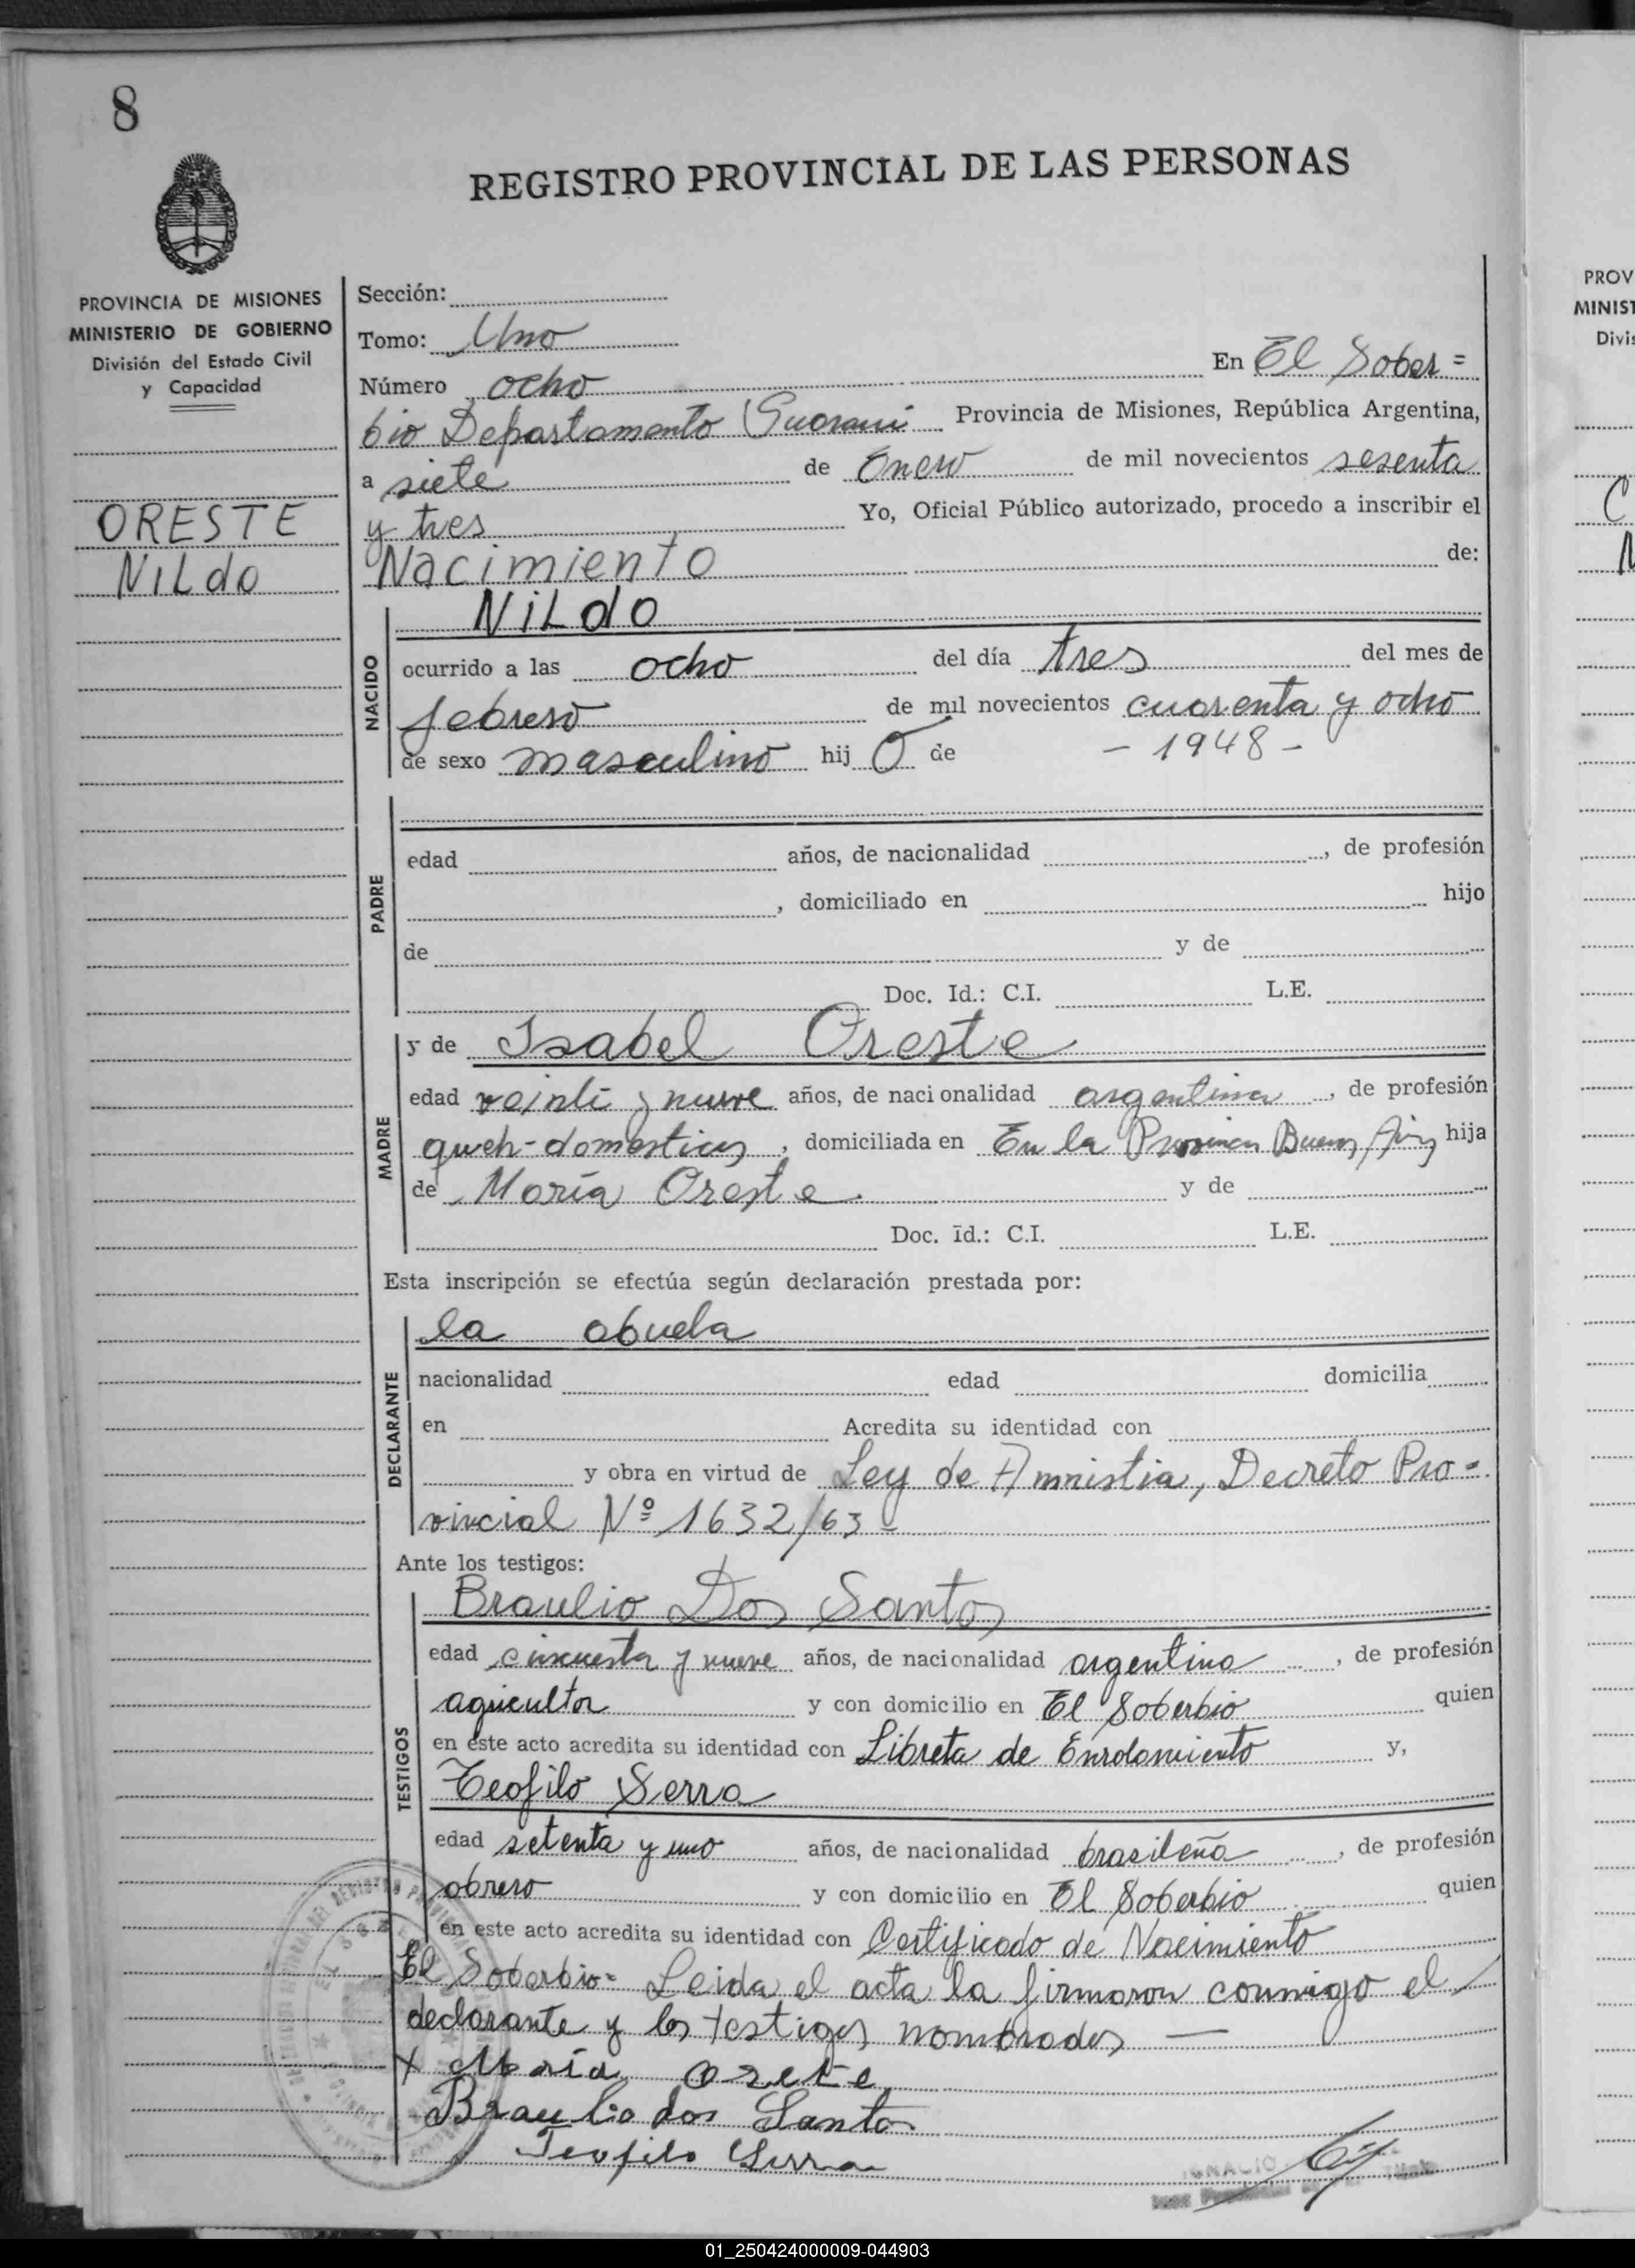 8
REGISTRO PROVINCIAL DE LAS PERSONAS
PROVINCIA DE MISIONES
MINISTERIO DE GOBIERNO
División del Estado Civil
y Capacidad
ORESTE
NILdo
Sección:
Tomo: Uno
Número ocho En El Sober=
bio Departamento Guarani Provincia de Misiones, República Argentina,
a siete de Enero de mil novecientos sesenta
y tres Yo, Oficial Público autorizado, procedo a inscribir el
Nacimiento de:
NiLdo
NACIDO
ocurrido a las ocho del día tres del mes de
febrero de mil novecientos cuarenta y ocho
de sexo masculino hij O de - 1948 -
PADRE
edad años, de nacionalidad , de profesión
, domiciliado en hijo
de y de
Doc. Id.: C.I. L.E.
MADRE
y de Isabel Oreste
edad veinti y nueve años, de nacionalidad argentina , de profesión
queh-domesticos , domiciliada en En la Provincia Buenos Aires hija
de María Oreste. y de
Doc. Id.: C.I. L.E.
Esta inscripción se efectúa según declaración prestada por:
DECLARANTE
la abuela
nacionalidad edad domicilia
en Acredita su identidad con
y obra en virtud de Ley de Amnistia, Decreto Pro-
vincial Nº 1632/63-
Ante los testigos:
TESTIGOS
Braulio Dos Santos
edad cincuenta y nueve años, de nacionalidad argentina , de profesión
agricultor y con domicilio en El Soberbio quien
en este acto acredita su identidad con Libreta de Enrolamiento y,
Teofilo Serra
edad setenta y uno años, de nacionalidad brasileña , de profesión
obrero y con domicilio en El Soberbio quien
en este acto acredita su identidad con Certificado de Nacimiento
El Soberbio= Leida el acta la firmaron conmigo el
declarante y los testigos nombrados —
x María orete
Braulio dos Santos
Teofilo Serra
IGNACIO
PROV
MINIST
Divis
01_250424000009-044903